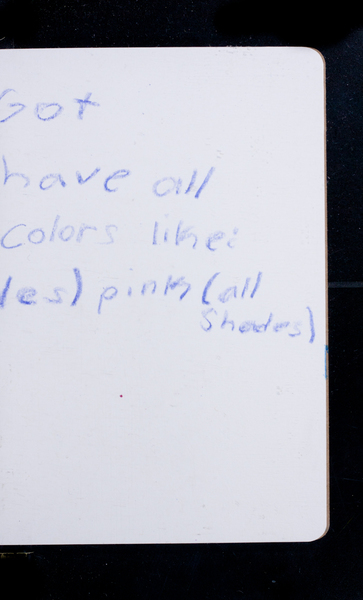 Got
have all
colors like:
les) pink (all
Shades)